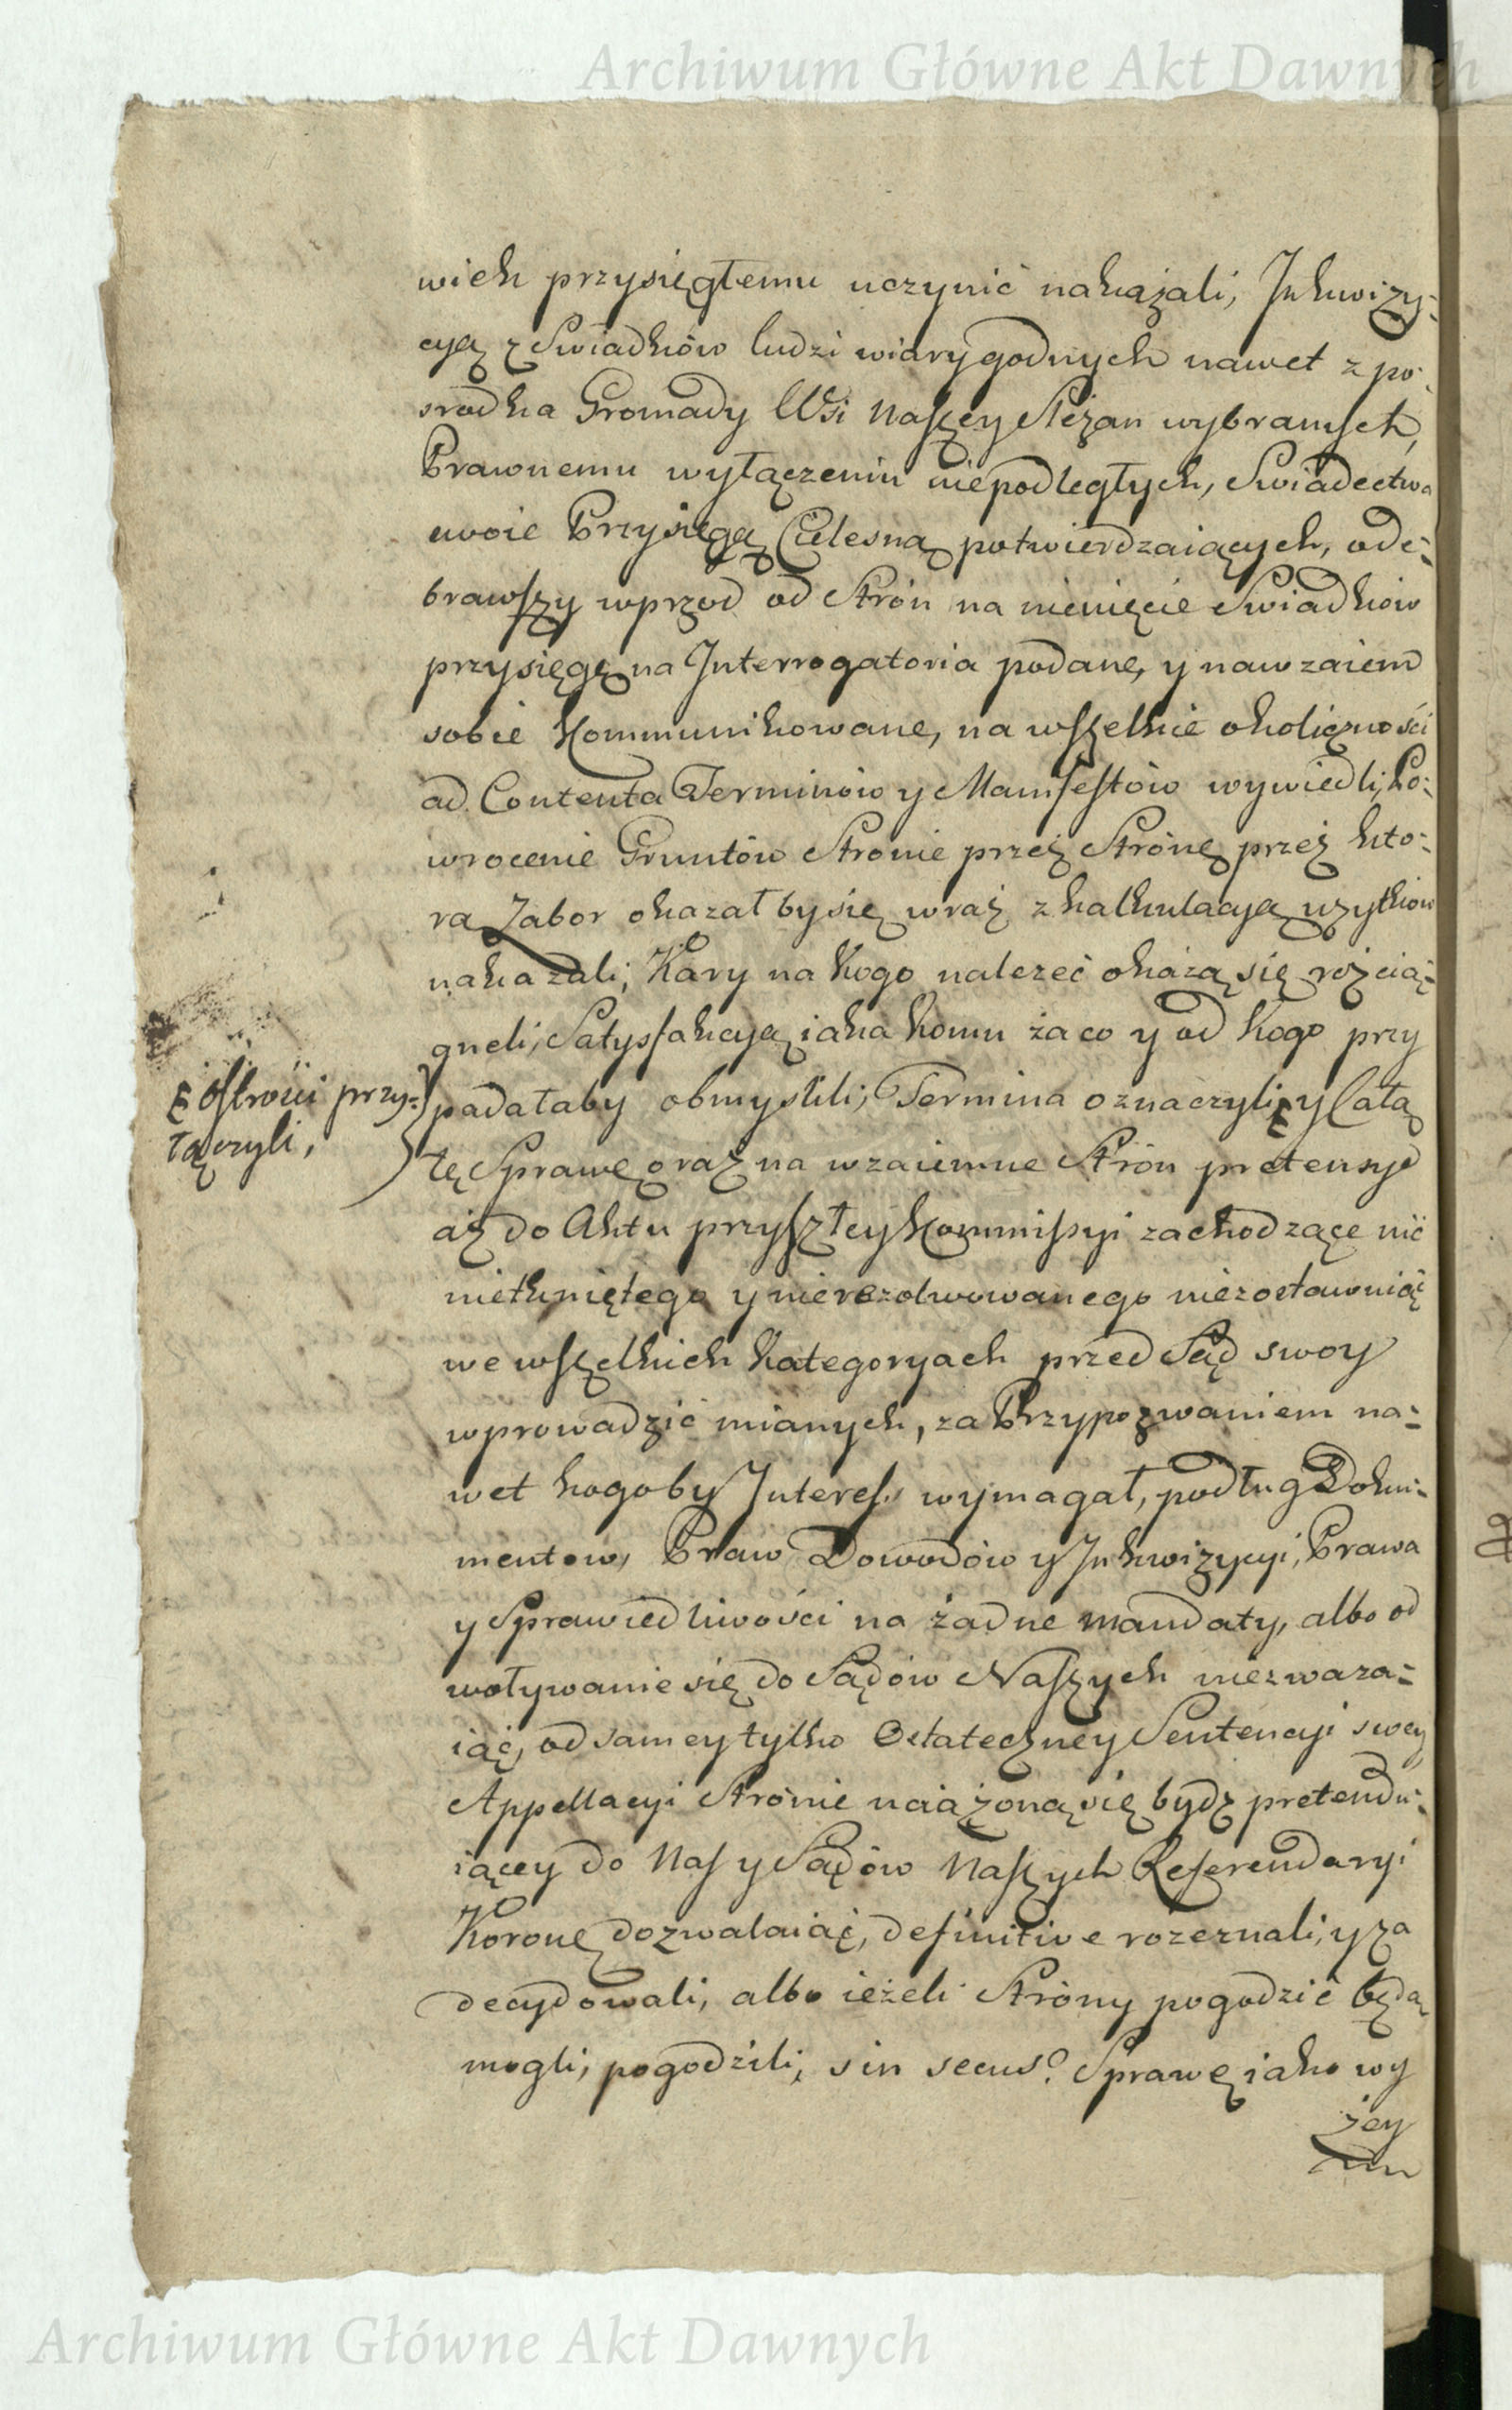 Archiwum Główne Akt Dawnych
wiek przysięgłemu uczynić nakazali, Inkwizy-
cyą z Swiadków ludzi wiary godnych nawet z po-
srodka Gromady Wsi Naszey Sieżan wybranych,
Prawnemu wyłączeniu niepodległych, Swiadectwa
swoie Przysięgą Cielesną potwierdzaiących, ode-
brawszy wprzod od Strón na nienięcie Swiadków
przysięgę na Interrogatoria podane, y nawzaiem
sobie kommunikowane, na wszelkie okoliczności
ad Contenta Terminów y Manifestów wywiedli, Po-
wrocenie Gruntów Stronie przez Stronę przez kto-
rą Zabor okazał by się wraz z kalkulacyą użytków
nakazali; Kary na kogo należeć okażą się rozcią-
gneli; Satysfakcyą iaka komu za co y od kogo przy
padałaby obmyslili; Termina oznaczyli, y całą
Ostrowi przy-
łączyli,
tę Sprawę oraz na wzaiemne Strón pretensye
aż do Aktu przyszłey Kommissyi zachodzące nic
nietkniętego y nierezolwowanego niezostawuiąc
we wszelkich kategoryach przed Sąd swoy
wprowadzić mianych, za Przypozwaniem na-
wet kogoby Interess wymagał, podług Doku-
mentow, Praw, Dowodów y Inkwizycyi, Prawa
y Sprawiedliwości na żadne mandaty, albo od
woływanie się do Sądów Naszych niezwaza-
iąc, od samey tylko Ostateczney Sentencyi swey
Appellacyi Stronie uciążoną się bydź pretendu-
iącey do Nas y Sądów Naszych Referendaryi
Koronę dozwalaiąc, definitive rozeznali, y za
decydowali, albo ieżeli Strony pogodzić będą
mogli, pogodzili, sin secus? Sprawę iako wy
żey
Archiwum Główne Akt Dawnych